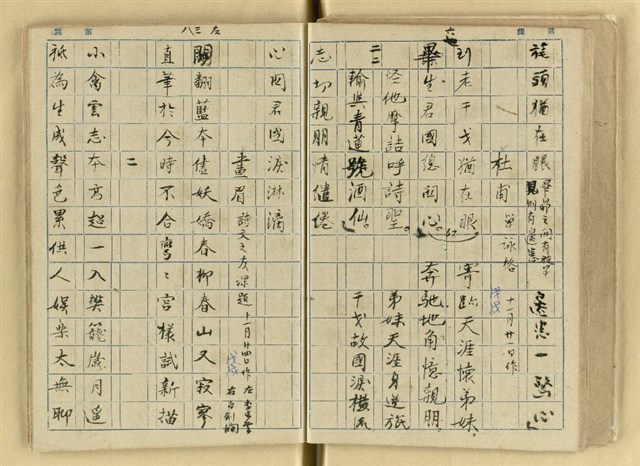 旄頭猶在眼 畢昴之間有旄頭 見別有遺恙 遠恙一驚心
杜甫 單詠格 十一月廿一日作 戊戌
到老干戈猶在眼 寄跡天涯懷弟妹
畢生君國總関心。 奔馳地角憶親朋。
二 任他摩詰呼詩聖。 弟妹天涯身逆旅
輸與青蓮號酒仙。 干戈故國淚橫流
志切親朋情繾綣
左 三八
心関君國淚淋漓
畫眉 詩文之友課題 十一月廿四日作 戊戌
翻藍本借妖嬌春柳春山又寂寥
直筆於今時不合彎〻宮樣試新描
二
小禽雲志本高超一入樊籠歲月遙
祇為生成聲色累供人娛樂太無聊